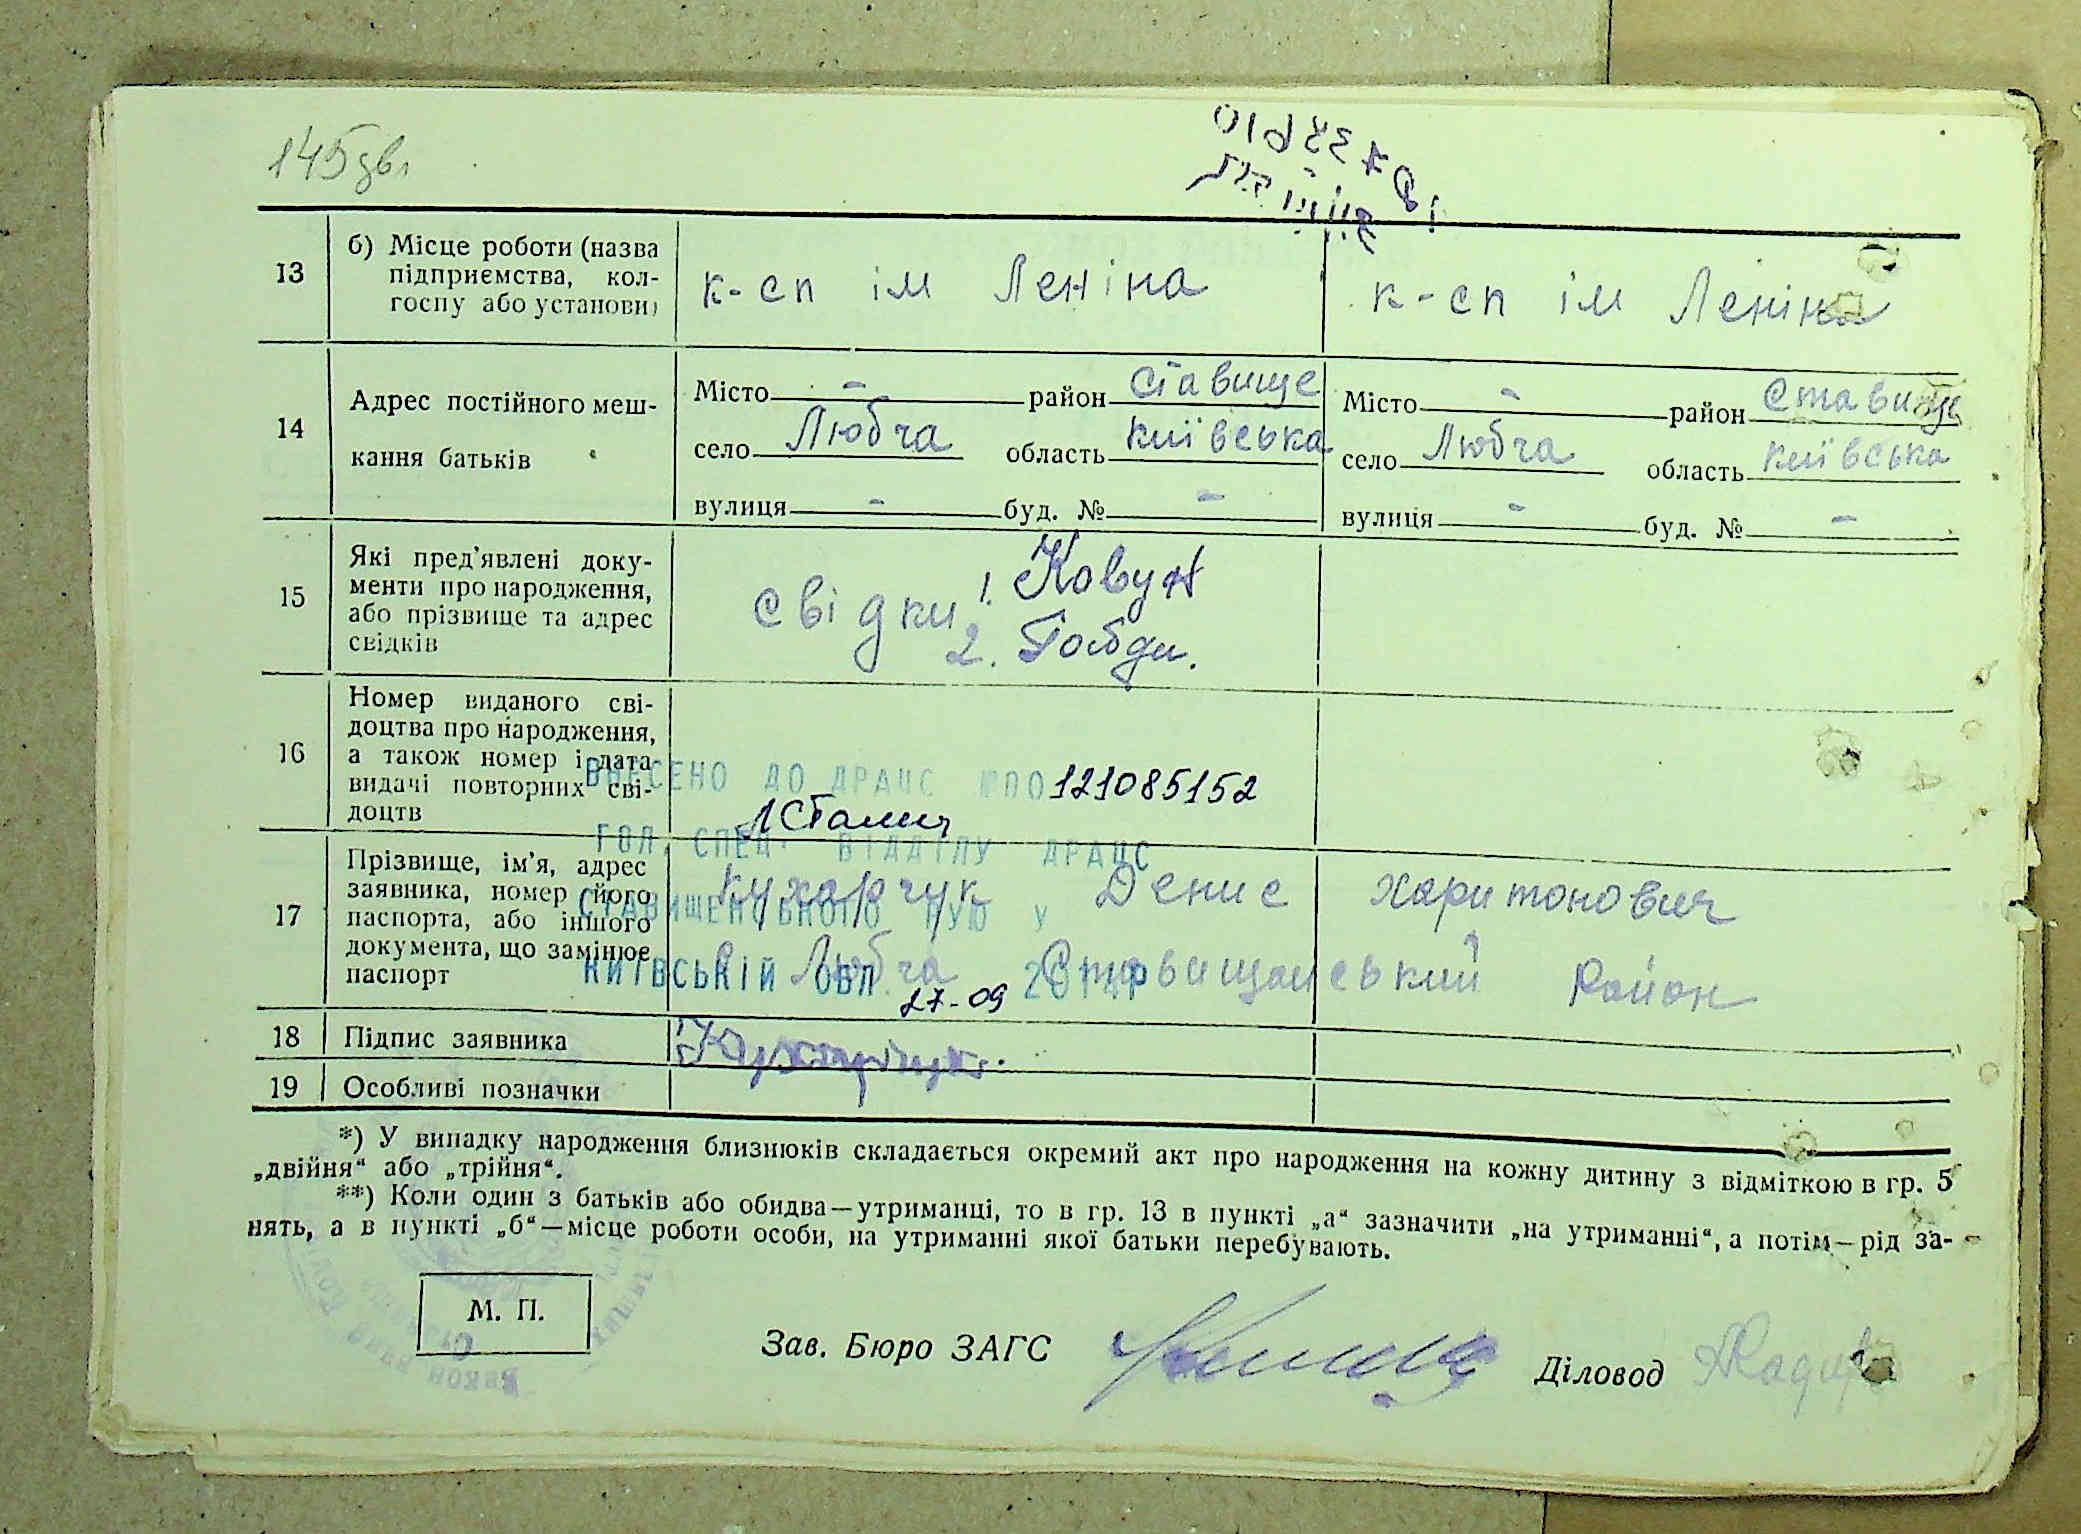 145 зв.
13
б) Місце роботи (назва
підприємства, кол-
госпу або установи)
к-сп ім Леніна
к-сп ім Леніна
14
Адрес постійного меш-
кання батьків
Місто - район Ставище
село Любча область Київська
вулиця - буд. № -
Місто - район Ставище
село Любча область Київська
вулиця - буд. № -
15
Які пред'явлені доку-
менти про народження,
або прізвище та адрес
свідків
Свідки: 1. Ковун
2. Гобди.
16
Номер виданого сві-
доцтва про народження,
а також номер і дата
видачі повторних сві-
доцтв
ВНЕСЕНО ДО ДРАЦС №ПО 121085152
ГОЛ. СПЕЦ. ВІДДІЛУ ДРАЦС
СТАВИЩЕНСЬКОГО РУЮ У
КИЇВСЬКІЙ ОБЛ. 27-09 2014Р
17
Прізвище, ім'я, адрес
заявника, номер його
паспорта, або іншого
документа, що замінює
паспорт
Кухарчук Денис Харитонович
с. Любча Ставищанський Район
18
Підпис заявника
Кухарчук.
19
Особливі позначки
*) У випадку народження близнюків складається окремий акт про народження на кожну дитину з відміткою в гр. 5
„двійня“ або „трійня“.
**) Коли один з батьків або обидва—утриманці, то в гр. 13 в пункті „а“ зазначити „на утриманні“, а потім—рід за-
нять, а в пункті „б“—місце роботи особи, на утриманні якої батьки перебувають.
М. П.
Зав. Бюро ЗАГС
Діловод